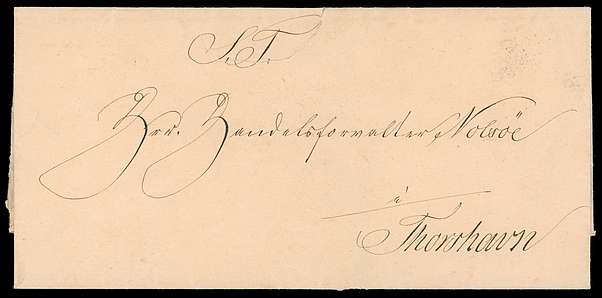 S. T.
Hrr. Handelsforvalter Nolsöe
i
Thorshavn